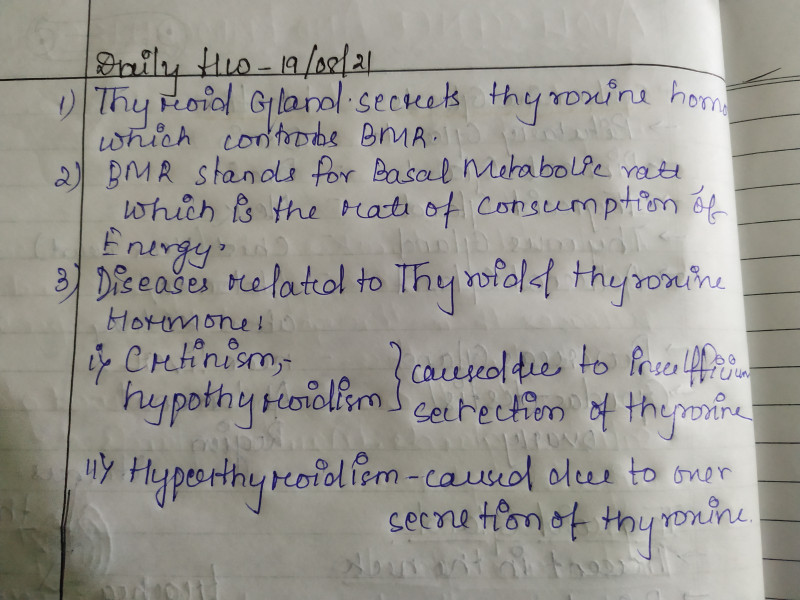 Daily H/W - 19/08/21
1) Thyroid Gland secrets thyroxine homo
which controbs BMR.
2) BMR stands for Basal Metabolic rate
which is the rate of consumption of
Energy.
3) Diseases related to Thyroid & thyroxine
Hormone:
i) Cretinism,-
hypothyroidism } caused due to insufficium
secrection of thyroxine
ii) Hyperthyroidism - caused due to over
secretion of thyroxine.